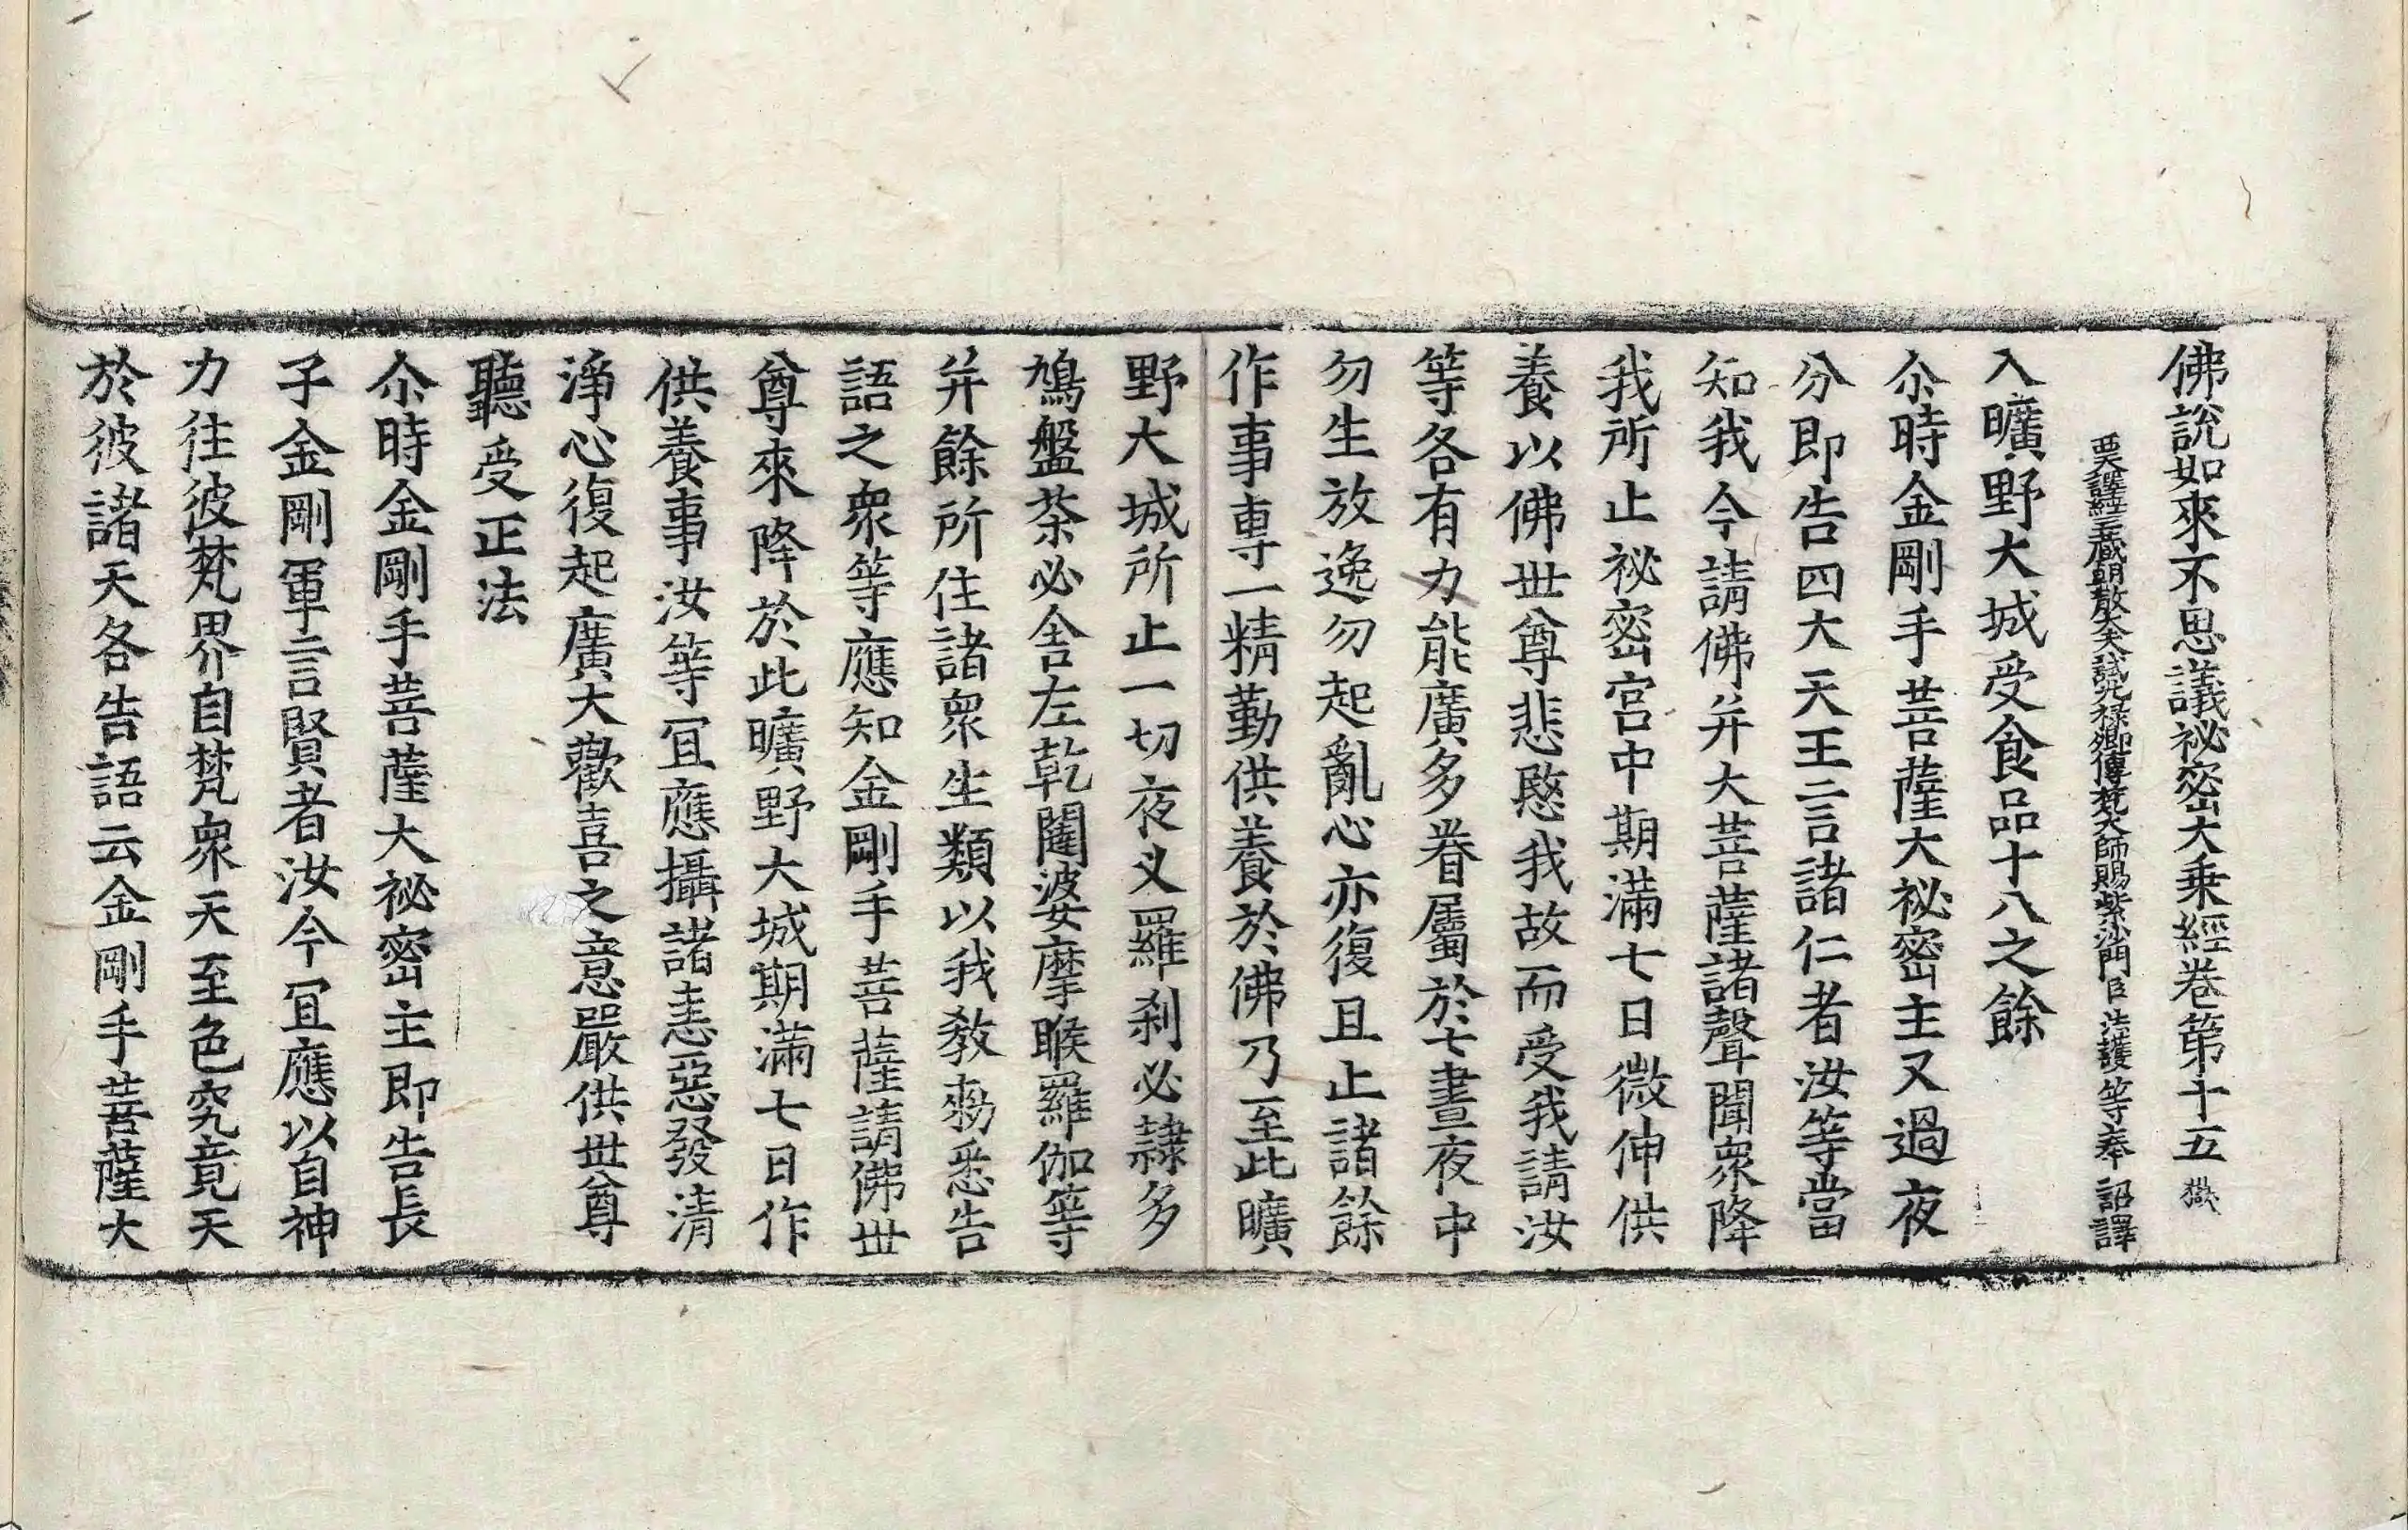 佛說如來不思議祕密大乗經卷第十五
西天譯經三藏朝散大夫試光祿卿傳梵大師賜紫沙門臣法護等奉 詔譯
入曠野大城受食品十八之餘
尒時金剛手菩薩大祕密主又過夜
分即告四大天王言諸仁者汝等當
知我今請佛并大菩薩諸聲聞衆降
我所止祕密宮中期滿七日微伸供
養以佛世尊悲愍我故而受我請汝
等各有力能廣多眷屬於七晝夜中
勿生放逸勿起亂心亦復且止諸餘
作事專一精勤供養於佛乃至此曠
野大城所止一切夜叉羅刹必隷多
鳩盤茶必舍左乾闥婆摩睺羅伽等
并餘所住諸衆生類以我教勑悉告
語之衆等應知金剛手菩薩請佛世
尊來降於此曠野大城期滿七日作
供養事汝等冝應攝諸恚惡發清
淨心復起廣大歡喜之意嚴供世尊
聽受正法
尒時金剛手菩薩大祕密主即告長
子金剛軍言賢者汝今冝應以自神
力往彼梵界自梵衆天至色究竟天
於彼諸天各告語云金剛手菩薩大